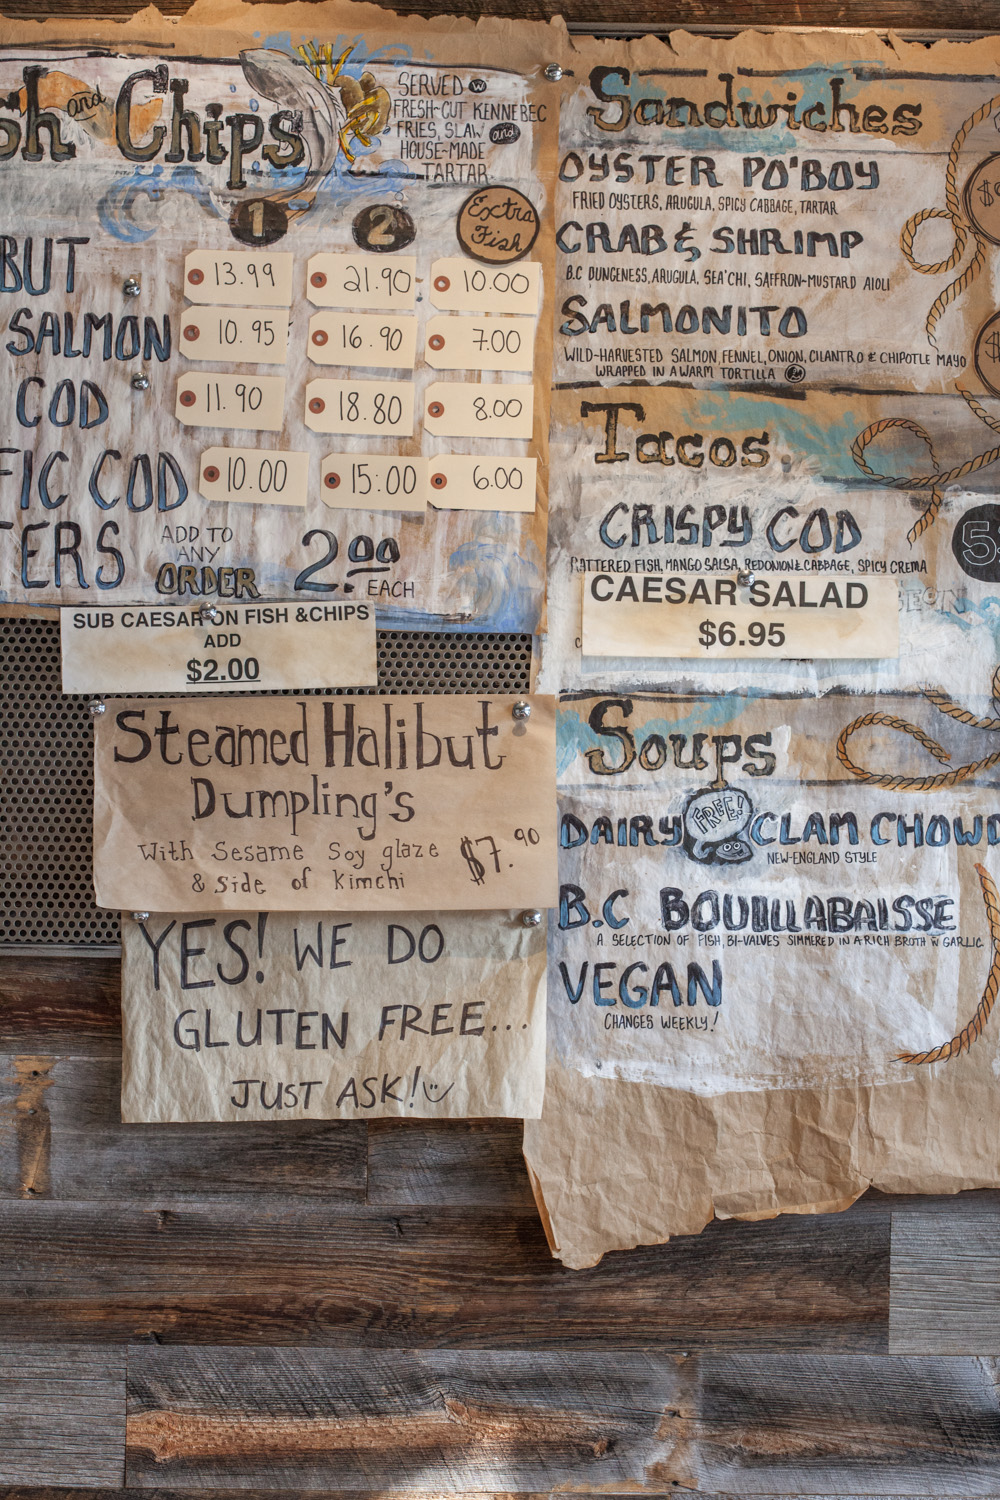 and Chips
SERVED W
FRESH-CUT KENNEBEC
FRIES, SLAW and
HOUSE-MADE
TARTAR
1 2 Extra Fish
BUT 13.99 21.90 10.00
SALMON 10.95 16.90 7.00
COD 11.90 18.80 8.00
FIC COD 10.00 15:00 6.00
TERS ADD TO ANY ORDER 2.00 EACH
SUB CAESAR ON FISH &CHIPS
ADD
$2.00
Steamed Halibut
Dumpling's
With Sesame Soy glaze
& Side of Kimchi
$7.90
YES! WE DO
GLUTEN FREE...
JUST ASK!
Sandwiches
OYSTER PO'BOY
FRIED OYSTERS, ARUGULA, SPICY CABBAGE, TARTAR
CRAB & SHRIMP
B.C DUNGENESS, ARUGULA, SEA'CHI, SAFFRON-MUSTARD AIOLI
SALMONITO
WILD-HARVESTED SALMON, FENNEL, ONION, CILANTRO & CHIPOTLE MAYO
WRAPPED IN A WARM TORTILLA
Tacos
CRISPY COD
BATTERED FISH, MANGO SALSA, REDONION & CABBAGE, SPICY CREMA
5
CAESAR SALAD
$6.95
Soups
DAIRY FREE! CLAM CHOWD
NEW-ENGLAND STYLE
B.C BOUILLABAISSE
A SELECTION OF FISH, BI-VALVES SIMMERED IN A RICH BROTH W GARLIC
VEGAN
CHANGES WEEKLY!